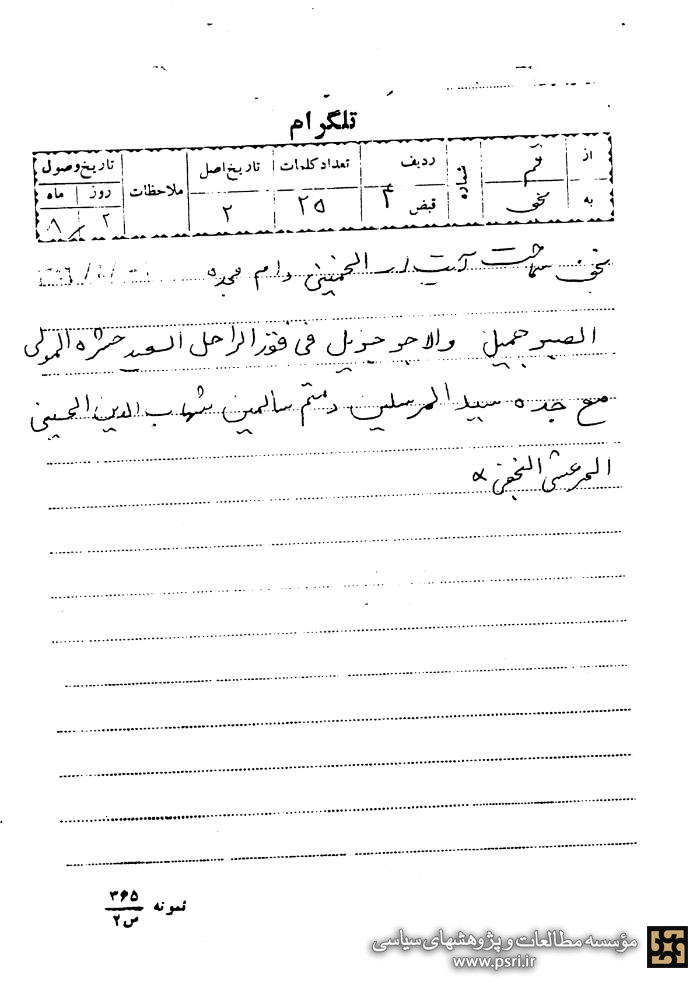 تلگرام
از قم ردیف تعداد کلمات تاریخ اصل ملاحظات تاریخ وصول
شماره روز ماه
به نجف قبض ۴ ۲۵ ۲ ۲ ۸
نجف سماحت آیت ا... الخمینی دام مجده
الصبر جمیل والاجر جزیل فی فقد الراحل السعید حشره المولی
مع جده سید المرسلین دمتم سالمین شهاب الدین الحسینی
المرعشی النجفی
نمونه ۳۶۵
ص۲
مؤسسه مطالعات و پژوهشهای سیاسی
www.psri.ir